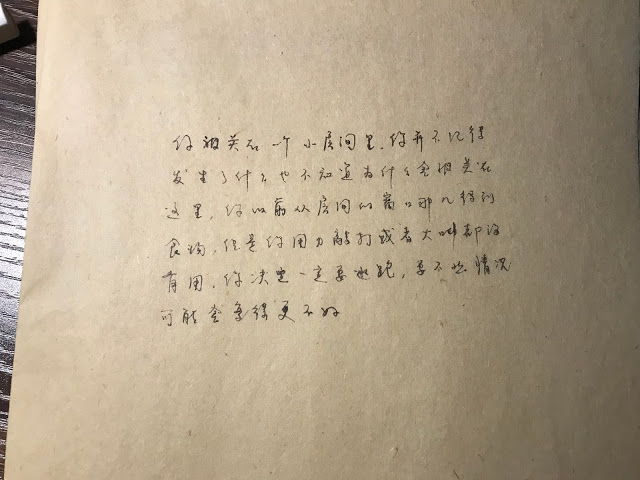 你被关在一个小房间里，你并不记得
发生了什么也不知道为什么会被关在
这里，你以前从房间的窗口那儿得到
食物，但是你用力敲打或者大叫都没
有用，你决定一定要逃跑，要不然情况
可能会变得更不好